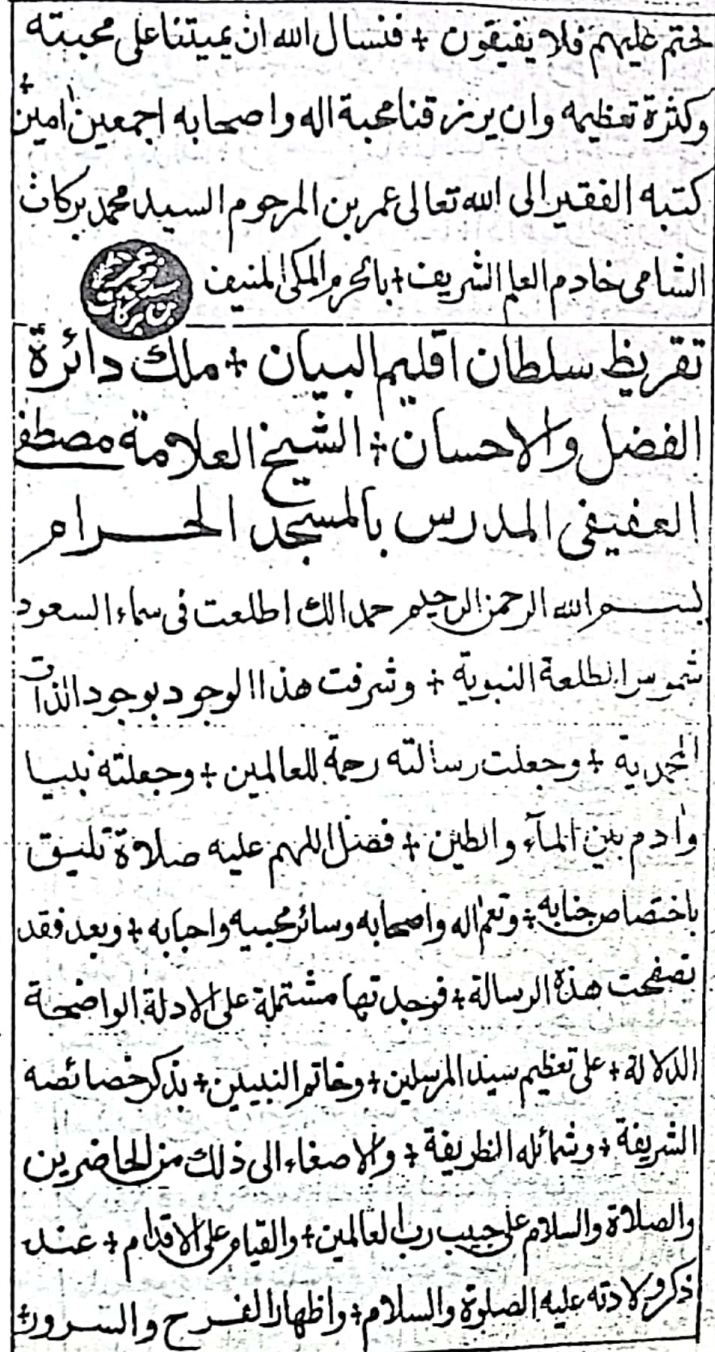 ختم عليهم فلا يفيقون + فنسال الله ان يميتنا على محبته
وكثرة تعظيمه وان يرزقنا محبة اله واصحابه اجمعين امين +
كتبه الفقير الى الله تعالى عمر بن المرحوم السيد محمد بركات
الشامى خادم العلم الشريف + بالحرم المكى المنيف
بن بركات
تقريظ سلطان اقليم البيان + ملك دائرة
الفضل والاحسان + الشيخ العلامة مصطفى
العفيفى المدرس بالمسجد الحرام
بسم الله الرحمن الرحيم حمدا لك اطلعت فى سماء السعود
شموس الطلعة النبوية + وشرفت هذا الوجود بوجود الذات
المحمدية + وجعلت رسالته رحمة للعالمين + وجعلته نبيا
وادم بين المآء والطين + فصل اللهم عليه صلاة تليق
باختصاص جنابه + وتعم اله واصحابه وسائر محبيه واحبابه + وبعد فقد
تصفحت هذه الرسالة + فوجدتها مشتملة على الادلة الواضحة
الدلالة + على تعظيم سيد المرسلين + وخاتم النبيين + بذكر خصائصه
الشريفة + وشمائله الظريفة + والاصغاء الى ذلك من الحاضرين
والصلاة والسلام على حبيب رب العالمين + والقيام على الاقدام + عند
ذكر ولادته عليه الصلوة والسلام + واظهار الفرح والسرور +